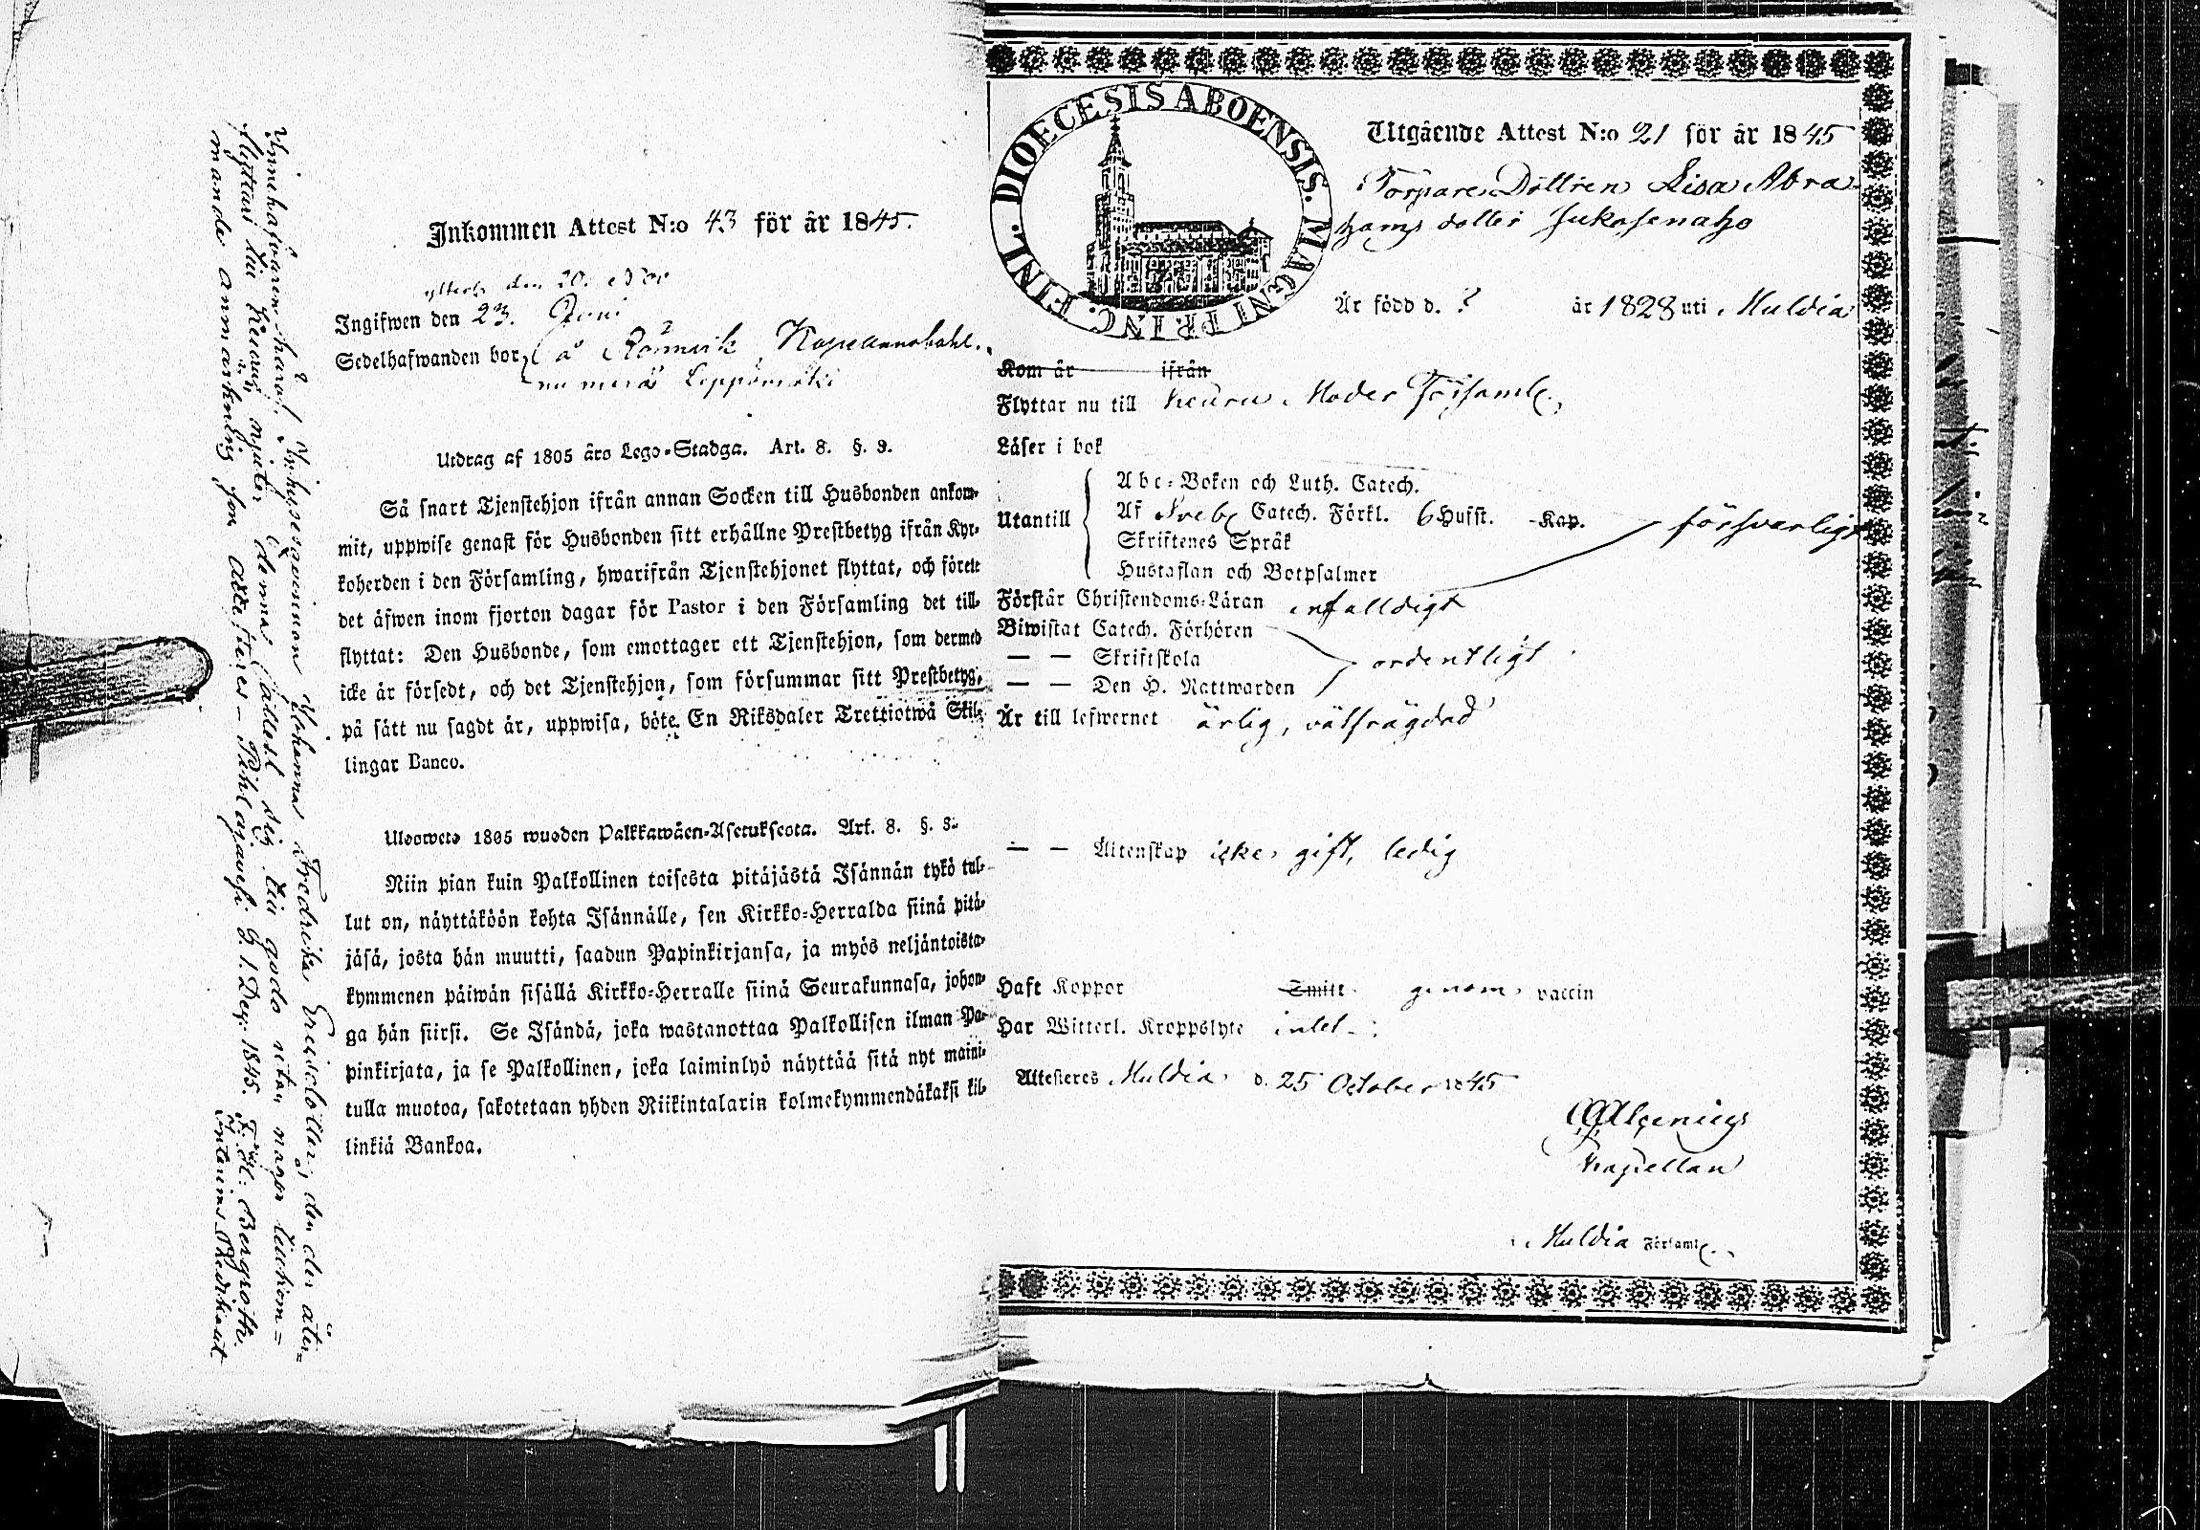 Inkommen Attest N:o 43 för år 1845.
den 20.
Ingifwen den 23. Juni
Sedelhafwanden bor å Rönnvik Kapellansbohl.
numera Leppämäki
Utdrag af 1805 års Lego-Stadga. Art. 8. §. 3.
Så snart Tjenstehjon ifrån annan Socken till Husbonden ankom-
mit, uppwise genast för Husbonden sitt erhållne Prestbetyg ifrån Kyr-
koherden i den Församling, hwarifrån Tjenstehjonet flyttat, och förete
det äfwen inom fjorton dagar för Pastor i den Församling det till-
flyttat: Den Husbonde, som emottager ett Tjenstehjon, som dermed
icke är försedt, och det Tjenstehjon, som försummar sitt Prestbetyg,
på sätt nu sagdt är, uppwisa, böte En Riksdaler Trettiotwå Skil-
lingar Banco.
Ulosweto 1805 wuoden Palkkawäen-Asetuksesta. Art. 8. §. 3.
Niin pian kuin Palkollinen toisesta pitäjästä Isännän tykö tul-
lut on, näyttäköön kohta Isännälle, sen Kirkko-Herralda siinä pitä-
jäsä, josta hän muutti, saadun Papinkirjansa, ja myös neljäntoista-
kymmenen päiwän sisällä Kirkko-Herralle siinä Seurakunnasa, johon-
ga hän siirsi. Se Isändä, joka wastanottaa Palkollisen ilman Pa-
pinkirjata, ja se Palkollinen, joka laiminlyö näyttää sitä nyt maini-
tulla muotoa, sakotetaan yhden Riikintalarin kolmekymmendäkaksi kil-
linkiä Bankoa.
Innehafvarinnan häraf, Inhysesqvinnan Johanna Fredrika Ericsdotter, den der åter-
flyttar till Keuru, njuter denna fädlesl sig till godo utan någon tillkom-
mande anmärkning, som attesteres - Pihlajavesi d. 1. Dec. 1845. F. H. Bergroth.
Interims Predikant
DIOECESIS ABOENSIS. MAGNI PRINC. FINL.
Utgående Attest N:o 21 för år 1845
Torpare Dottren Lisa Abra-
hams dotter Jukosenaho
Är född d. ? år 1828 uti Muldia
Kom år ifrån
Flyttar nu till Keuru Moder Församl.
Läser i bok
Utantill
Abc-Boken och Luth. Catech.
Af Sveb. Catech. Förkl. 6 Hufst. Kap. försvarligt
Skriftenes Språk
Hustaflan och Botpsalmer
Förstår Christendoms-Läran enfaldigt
Biwistat Catech. Förhören
— — Skriftskola ordentligt
— — Den H. Nattwarden
Är till lefwernet ärlig, välfrägdad
— — Äktenskap icke gift, ledig
Haft Koppor Smitt genom vaccin
Har Witterl. Kroppslyte intet.
Attesteres Muldia d. 25 October 1845
Algenius
Kapellan
i Muldia Församl.